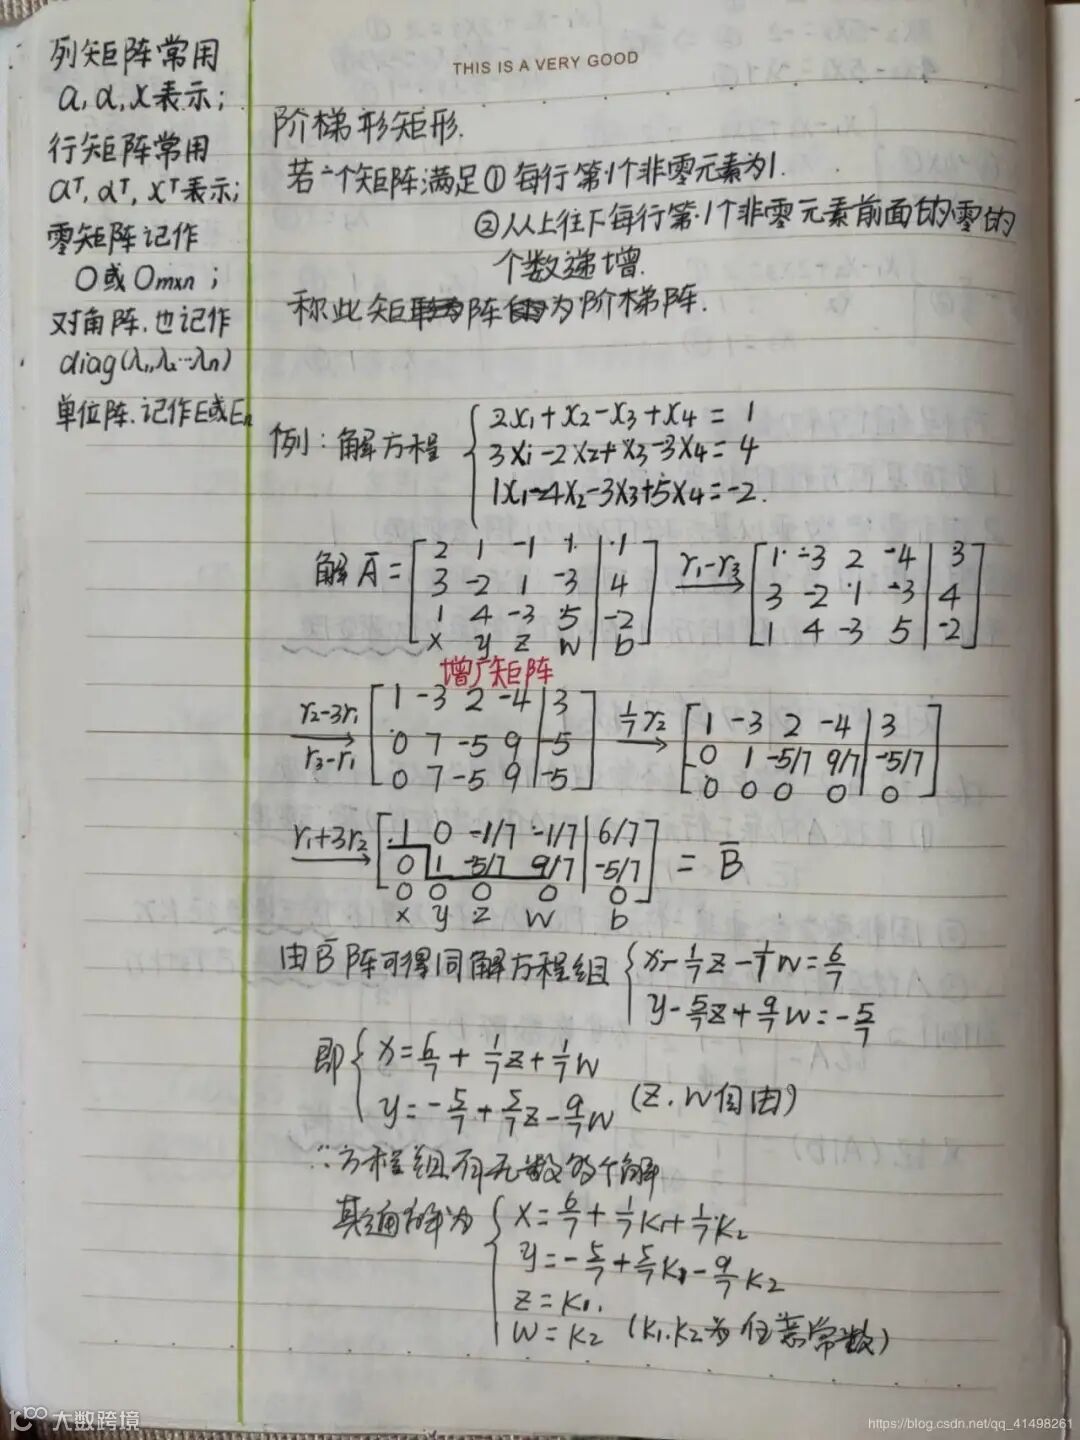 列矩阵常用
a, α, x表示;
行矩阵常用
aᵀ, αᵀ, xᵀ表示;
零矩阵记作
O或Om×n ;
对角阵.也记作
diag(λ₁,λ₂…λn)
单位阵.记作E或En
THIS IS A VERY GOOD
阶梯形矩形.
若一个矩阵满足①每行第1个非零元素为1.
②从从上往下每行第1个非零元素前面的零的
个数递增.
称此矩阵为阶梯阵.
例: 解方程 { 2x₁+x₂-x₃+x₄= 1
3x₁-2x₂+x₃-3x₄= 4
1x₁-4x₂-3x₃+5x₄=-2.
解 Ā= [ 2 1 -1 1 | 1 ] r₁-r₃ → [ 1 -3 2 -4 | 3 ]
[ 3 -2 1 -3 | 4 ] [ 3 -2 1 -3 | 4 ]
[ 1 4 -3 5 | -2 ] [ 1 4 -3 5 | -2 ]
x y z w | b
增广矩阵
r₂-3r₁ → r₃-r₁ [ 1 -3 2 -4 | 3 ] 1/7 r₂ → [ 1 -3 2 -4 | 3 ]
[ 0 7 -5 9 | -5 ] [ 0 1 -5/7 9/7 | -5/7 ]
[ 0 7 -5 9 | -5 ] [ 0 0 0 0 | 0 ]
r₁+3r₂ → [ 1 0 -1/7 -1/7 | 6/7 ]
[ 0 1 -5/7 9/7 | -5/7 ] = B̄
[ 0 0 0 0 | 0 ]
x y z w b
由B̄阵可得同解方程组 { x-1/7z-1/7w=6/7
y-5/7z+9/7w=-5/7
即 { x=6/7+1/7z+1/7w
y=-5/7+5/7z-9/7w (z.w自由)
∴方程组有无数多个解
其通解为 { x=6/7+1/7k₁+1/7k₂
y=-5/7+5/7k₁-9/7k₂
z=k₁.
w=k₂ (k₁.k₂为任意常数)
大数跨境
https://blog.csdn.net/qq_41498261